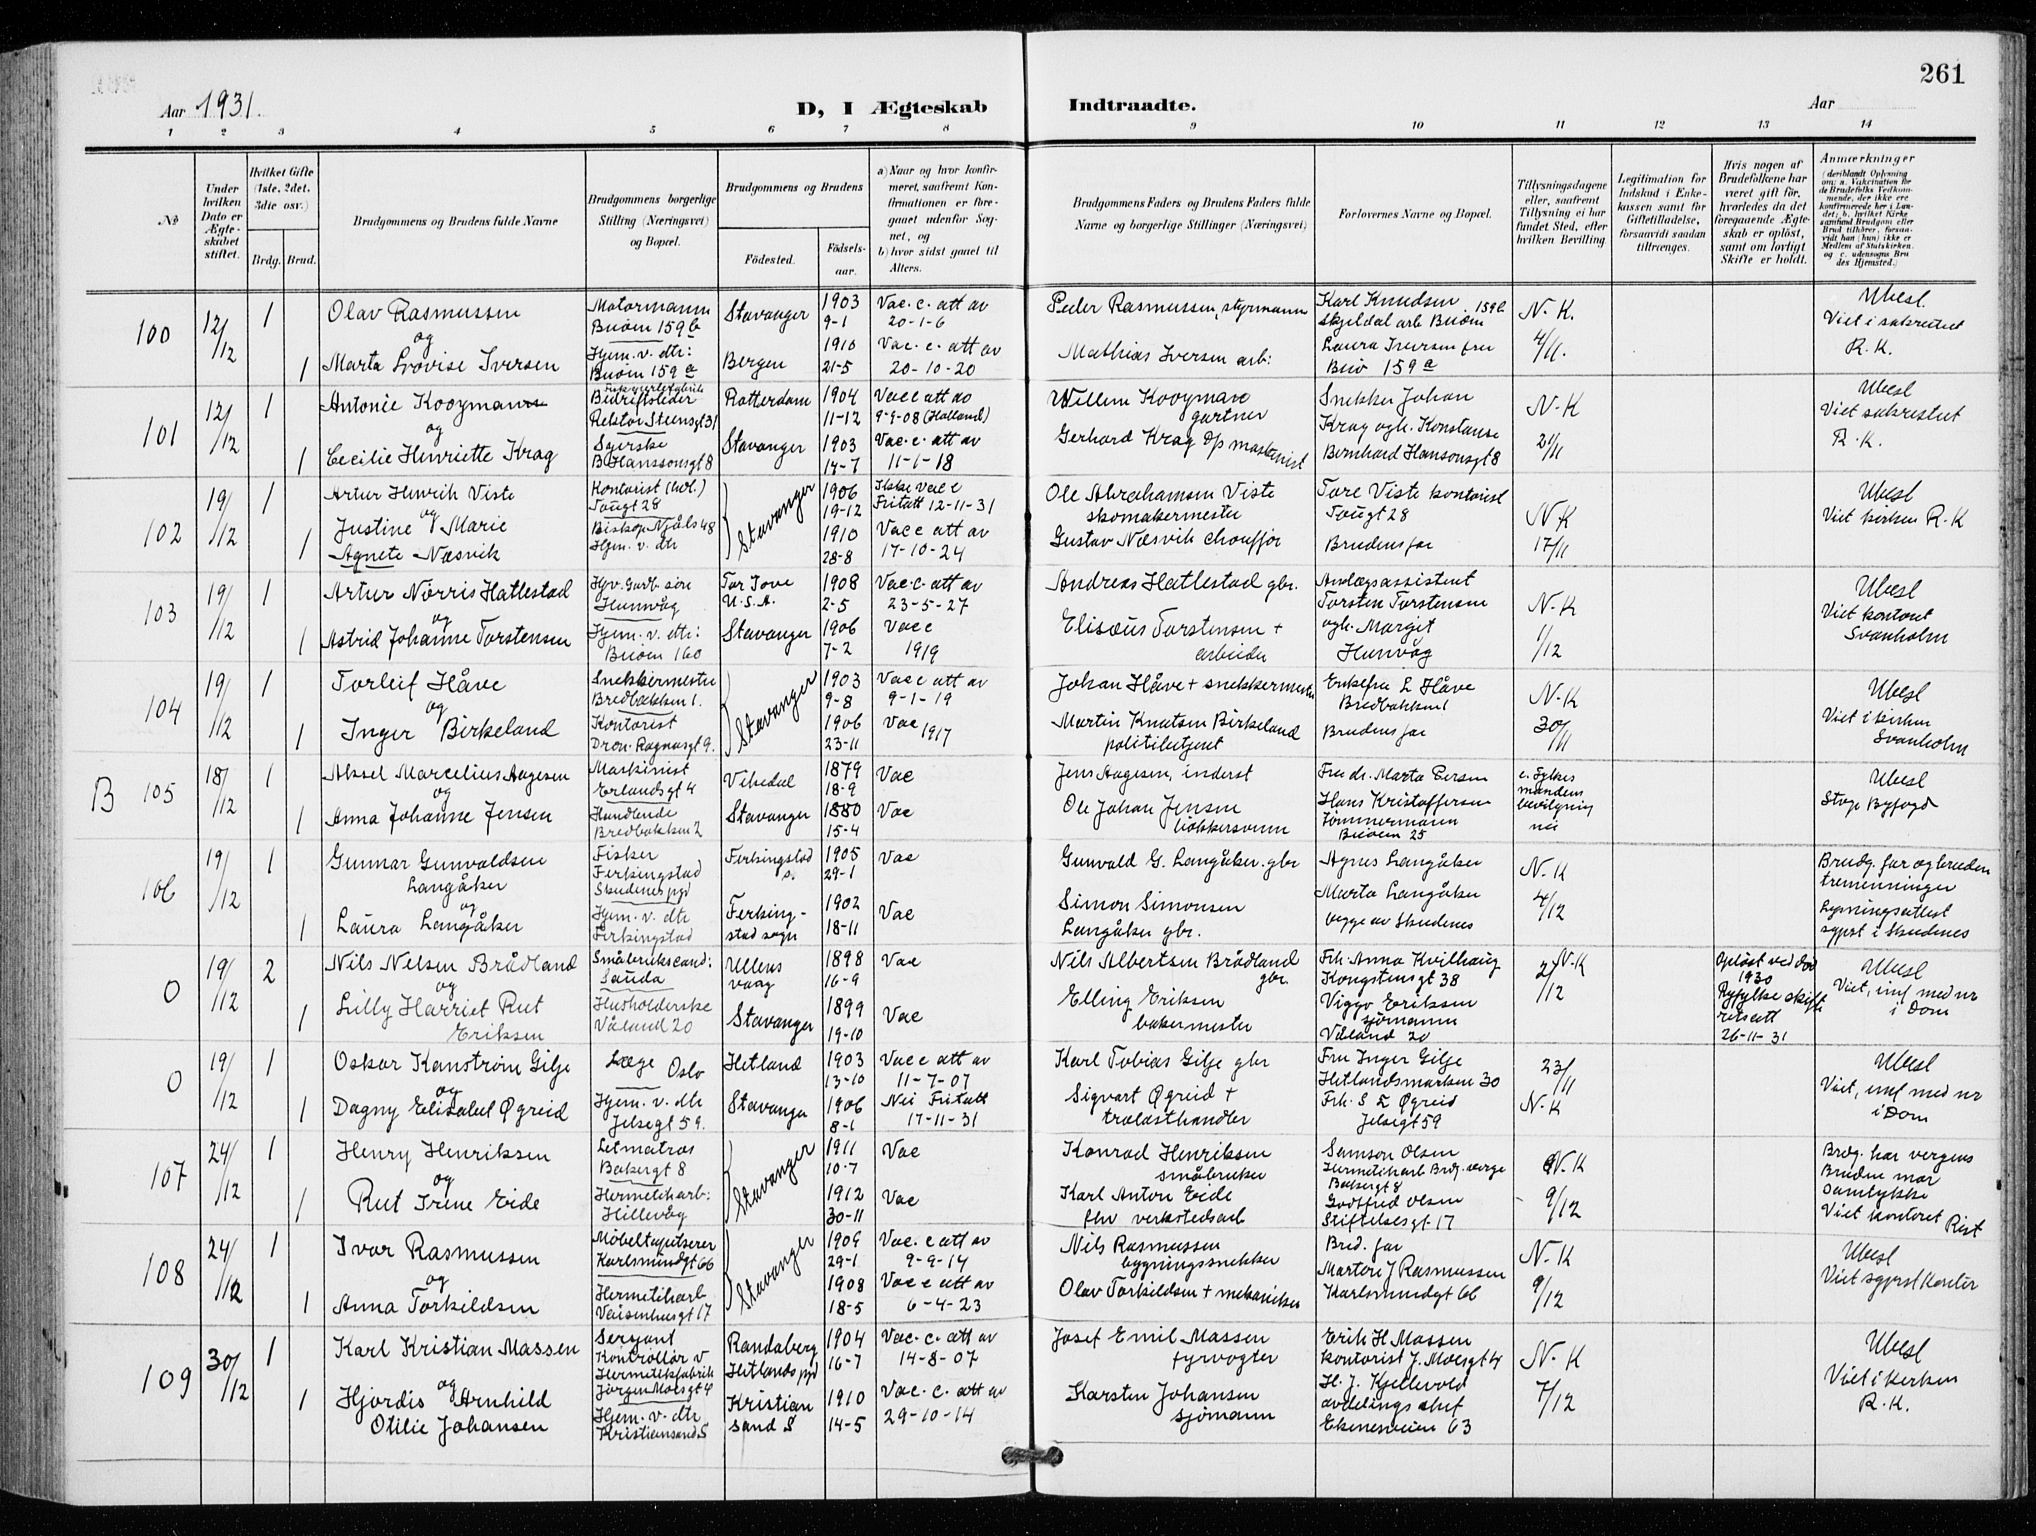 261
Aar 1931.
D, I Ægteskab Indtraadte.
Aar
1 2 3 4 5 6 7 8 9 10 11 12 13 14
No
Under hvilken Dato er Ægteskabet stiftet.
Hvilket Gifte (1ste, 2det, 3die osv.)
Brdg. Brud.
Brudgommens og Brudens fulde Navne
Brudgommens borgerlige Stilling (Næringsvei) og Bopæl.
Brudgommens og Brudens
Födested. Födselsaar.
a) Naar og hvor konfirmeret, saafremt Konfirmationen er foregaaet udenfor Sognet, og
b) hvor sidst gaaet til Alters.
Brudgommens Faders og Brudens Faders fulde Navne og borgerlige Stillinger (Næringsvei)
Forlovernes Navne og Bopæl.
Tillysningsdagene eller, saafremt Tillysning ei har fundet Sted, efter hvilken Bevilling.
Legitimation for Indskud i Enkekassen samt for Giftetilladelse, forsaavidt saadan tiltrænges.
Hvis nogen af Brudefolkene har været gift för, hvorledes da det foregaaende Ægteskab er oplöst, samt om lovligt Skifte er holdt.
Anmærkninger (deriblandt Oplysning om: a. Vakcination för de Brudefolks Vedkommende, der ikke ere konfirmerede her i Landet; b. hvilket Kirkesamfund Brudgom eller Brud tilhörer, forsaavidt han (hun) ikke er Medlem af Statskirken, og c. udensogns Brudes Hjemsted.)
100 12/12 1 Olav Rasmussen Motormann Buøen 159b Stavanger 1903 9-1 Vac. c. att av 20-1-6 Peder Rasmussen, styrmann Karl Knudsen skjeldal arb Buøen 159b N. K. Ubesl. Viet i sakrestiet R. K.
og
1 Marta Lovise Iversen Hjem. v. dtr: Buøen 159a Bergen 1910 21-5 Vac. c. att av 20-10-20 Mathias Iversen arb: Laura Iversen fru Buø 159a 4/11.
101 12/12 1 Antonie Kooyman Bedriftsleder Rektor Steensgt 31 Rotterdam 1904 11-12 Vac c att av 9-9-08 (Holland) Willem Kooyman gartner Snekker Johan Krag og h. Konstanse N-K Ubesl Viet sakrestiet R. K.
og
1 Cecilie Henriette Krag Syerske B Hanssonsgt 8 Stavanger 1903 14-7 Vac. c. att av 11-1-18 Gerhard Krag dp maskinist Bernhard Hansonsgt 8 21/11
102 19/12 1 Artur Henrik Viste Kontorist Tougt 28 Stavanger 1906 19-12 Ikke vac c Fritatt 12-11-31 Ole Abrahamsen Viste skomakermester Tore Viste kontorist Tougt 28 N-K Ubesl Viet kirken R. K
og
1 Justine Marie Agnete Næsvik Biskop Njåls 48 Hjem. v. dtr 1910 28-8 Vac c att av 17-10-24 Gustav Næsvik chouffør Brudens far 17/11
103 19/12 1 Artur Norris Hatlestad Hunvåg U.S.A. 1908 2-5 Vac. c. att av 23-5-27 Andreas Hatlestad gbr. Torsten Torstensen og h. Margit Hunvåg N-K Ubesl Viet kontoret Svanholm
og
1 Astrid Johanne Torstensen Hjem. v. dtr: Buøen 160 Stavanger 1906 7-2 Vac c 1919 Elisæus Torstensen + arbeider 1/12
104 19/12 1 Torleif Håve Snekkermester Bredbakken 1. Stavanger 1903 9-8 Vac c att av 9-1-19 Johan Håve + snekkermester Enkefru L Håve Bredbakken 1 N-K Ubesl Viet i kirken Svanholm
og
1 Inger Birkeland Kontorist Dron. Ragnasgt 9. 1906 23-11 Vac 1917 Martin Knutsen Birkeland politibetjent Brudens far 30/11
B 105 18/12 1 Aksel Marcelius Aagesen Maskinist Erlandsgt 4 Vikedal 1879 18-9 Vac Jens Aagesen, inderst Ubesl Stvgr Byfogd
og
1 Anna Johanne Jensen Handlende Bredbakken 2 Stavanger 1880 15-4 Vac Ole Johan Jensen bøkkersvenn Hans Kristoffersen Tømmermann Buøen 25 c. Fylkesmandens bevilgning
106 19/12 1 Gunnar Gunvaldsen Langåker Fisker Ferkingstad Skudenes pgd Ferkingstad s. 1905 29-1 Vac Gunvald G. Langåker. gbr Agnes Langåker N. K Brudg. far og bruden tremenninger
og
1 Laura Langåker Hjem. v. dtr Ferkingstad Ferkingstad sogn 1902 18-11 Vac Simon Simonsen Langåker gbr. Marta Langåker begge av Skudenes 4/12 Lysningsattest i Skudenes
0 19/12 2 Nils Nelsen Brådland Småbrukscand: Sauda Ullensvaag 1898 16-9 Vac Nils Albertsen Brådland gbr. Frk. Anna Kvilhaug Kongstensgt 38 N-K 2/12 Opløst ved død 1930 Ryfylke skifterett 26-11-31 Ubesl Viet, innf med nr i Dom
og
1 Lilly Harriet Rut Eriksen Husholderske Våland 20 Stavanger 1899 19-10 Vac Elling Eriksen bakermester Viggo Eriksen sjømann Våland 20
0 19/12 1 Oskar Kanstrøm Gilje Læge Oslo Hetland 1903 13-10 Vac c att av 11-7-07 Karl Tobias Gilje gbr Fru Inger Gilje Hetlandsmarken 30 23/11 Ubesl Viet, innf med nr i Dom
og
1 Dagny Elisabet Øgreid Hjem. v. dtr Jelsegt 59. Stavanger 1906 8-1 Nei Fritatt 17-11-31 Sigvart Øgreid + trælasthandler Frk. S E Øgreid Jelsegt 59 N-K
107 24/12 1 Henry Henriksen Letmatros Bakergt 8 Stavanger 1911 10-7 Vac Konrad Henriksen småbruker Samson Olsen Hermetikarb Brdg. verge Bakergt 8 N. K Brdg. har vergens Bruden mor samtykke
og
1 Rut Irene Eide Hermetikarb: Hillevåg 1912 30-11 Vac Karl Anton Eide fhv verkstedsarb Godtfred Olsen Stiftelsesgt 17 9/12 Viet kontoret Rist
108 24/12 1 Ivar Rasmussen Møbeltapetserer Karlsmindegt 66 Stavanger 1909 29-1 Vac. c att av 9-9-14 Nils Rasmussen bygningssnekker Brud. far N. K Ubesl Viet sgprst kontor
og
1 Anna Torkildsen Hermetikarb Vaisenhusgt 17 1908 18-5 Vac c att av 6-4-23 Olav Torkildsen + mekaniker Marten J Rasmussen Karlsmindegt 66 9/12
109 30/12 1 Karl Kristian Massen Sersjant Kontrollør v Hermetikkfabrik Jørgen Moesgt 4 Randaberg Hetlands pgd 1904 16-7 Vac. c. att av 14-8-07 Josef Emil Massen fyrvogter Erik H Massen kontorist J. Moesgt 4 N. K Ubesl Viet i kirken R. K.
og
1 Hjordis Arnhild Otilie Johansen Hjem. v. dtr Kristiansand S Kristiansand S 1910 14-5 Vac. c. att av 29-10-14 Karsten Johansen sjømann H. J. Kjellevold avdelings chef Ekeneveien 63 7/12